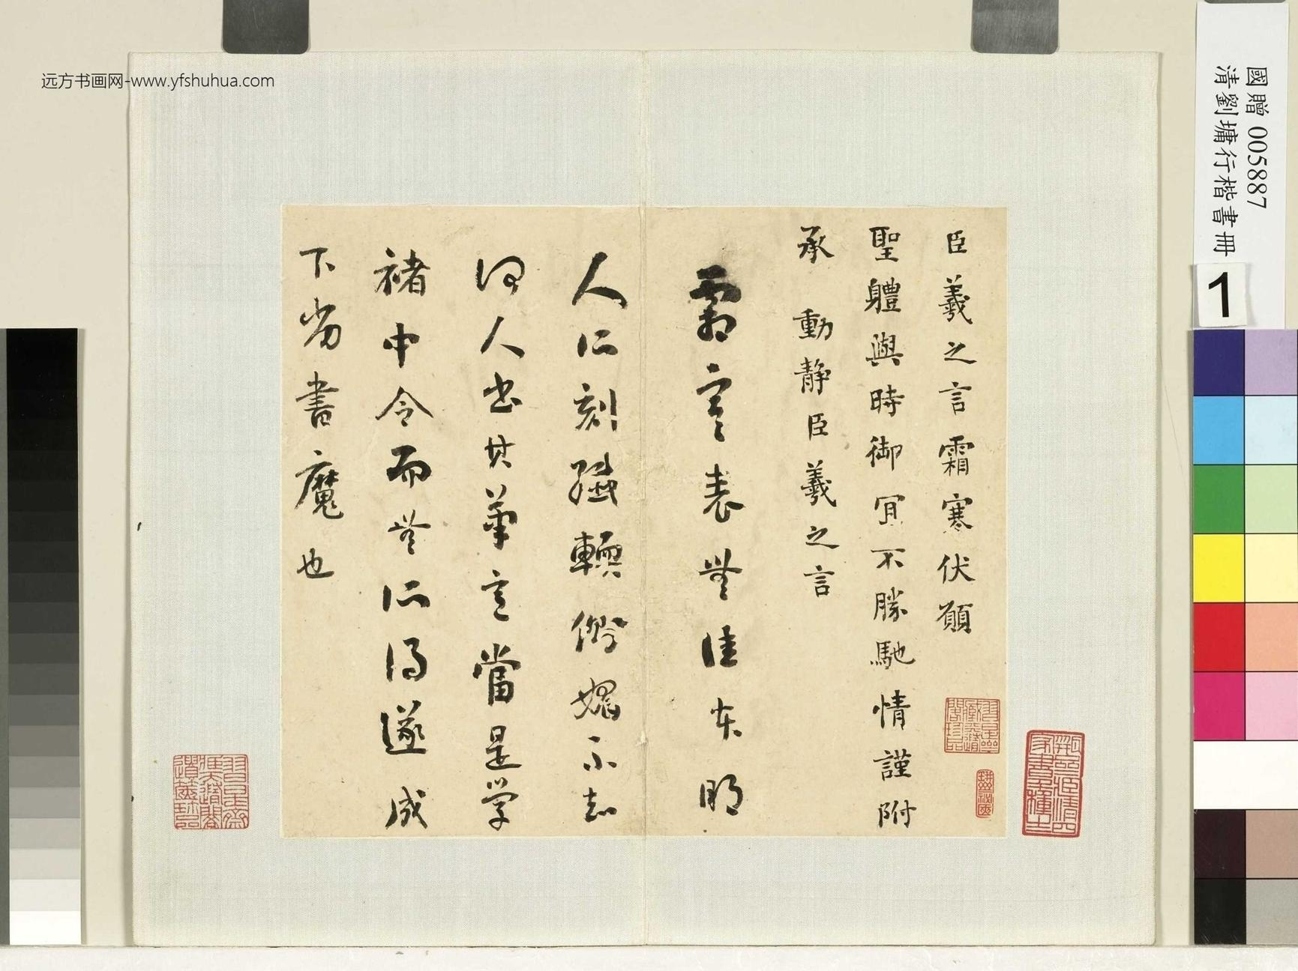 远方书画网-www.yfshuhua.com
國贈 005887
清劉墉行楷書冊
1
臣羲之言霜寒伏願
聖體與時御宜不勝馳情謹附
承 動靜臣羲之言
霜寒表無佳本明
人所刻纖輭媚不知
何人書其筆意當是學
褚中令而無所得遂成
下劣書魔也